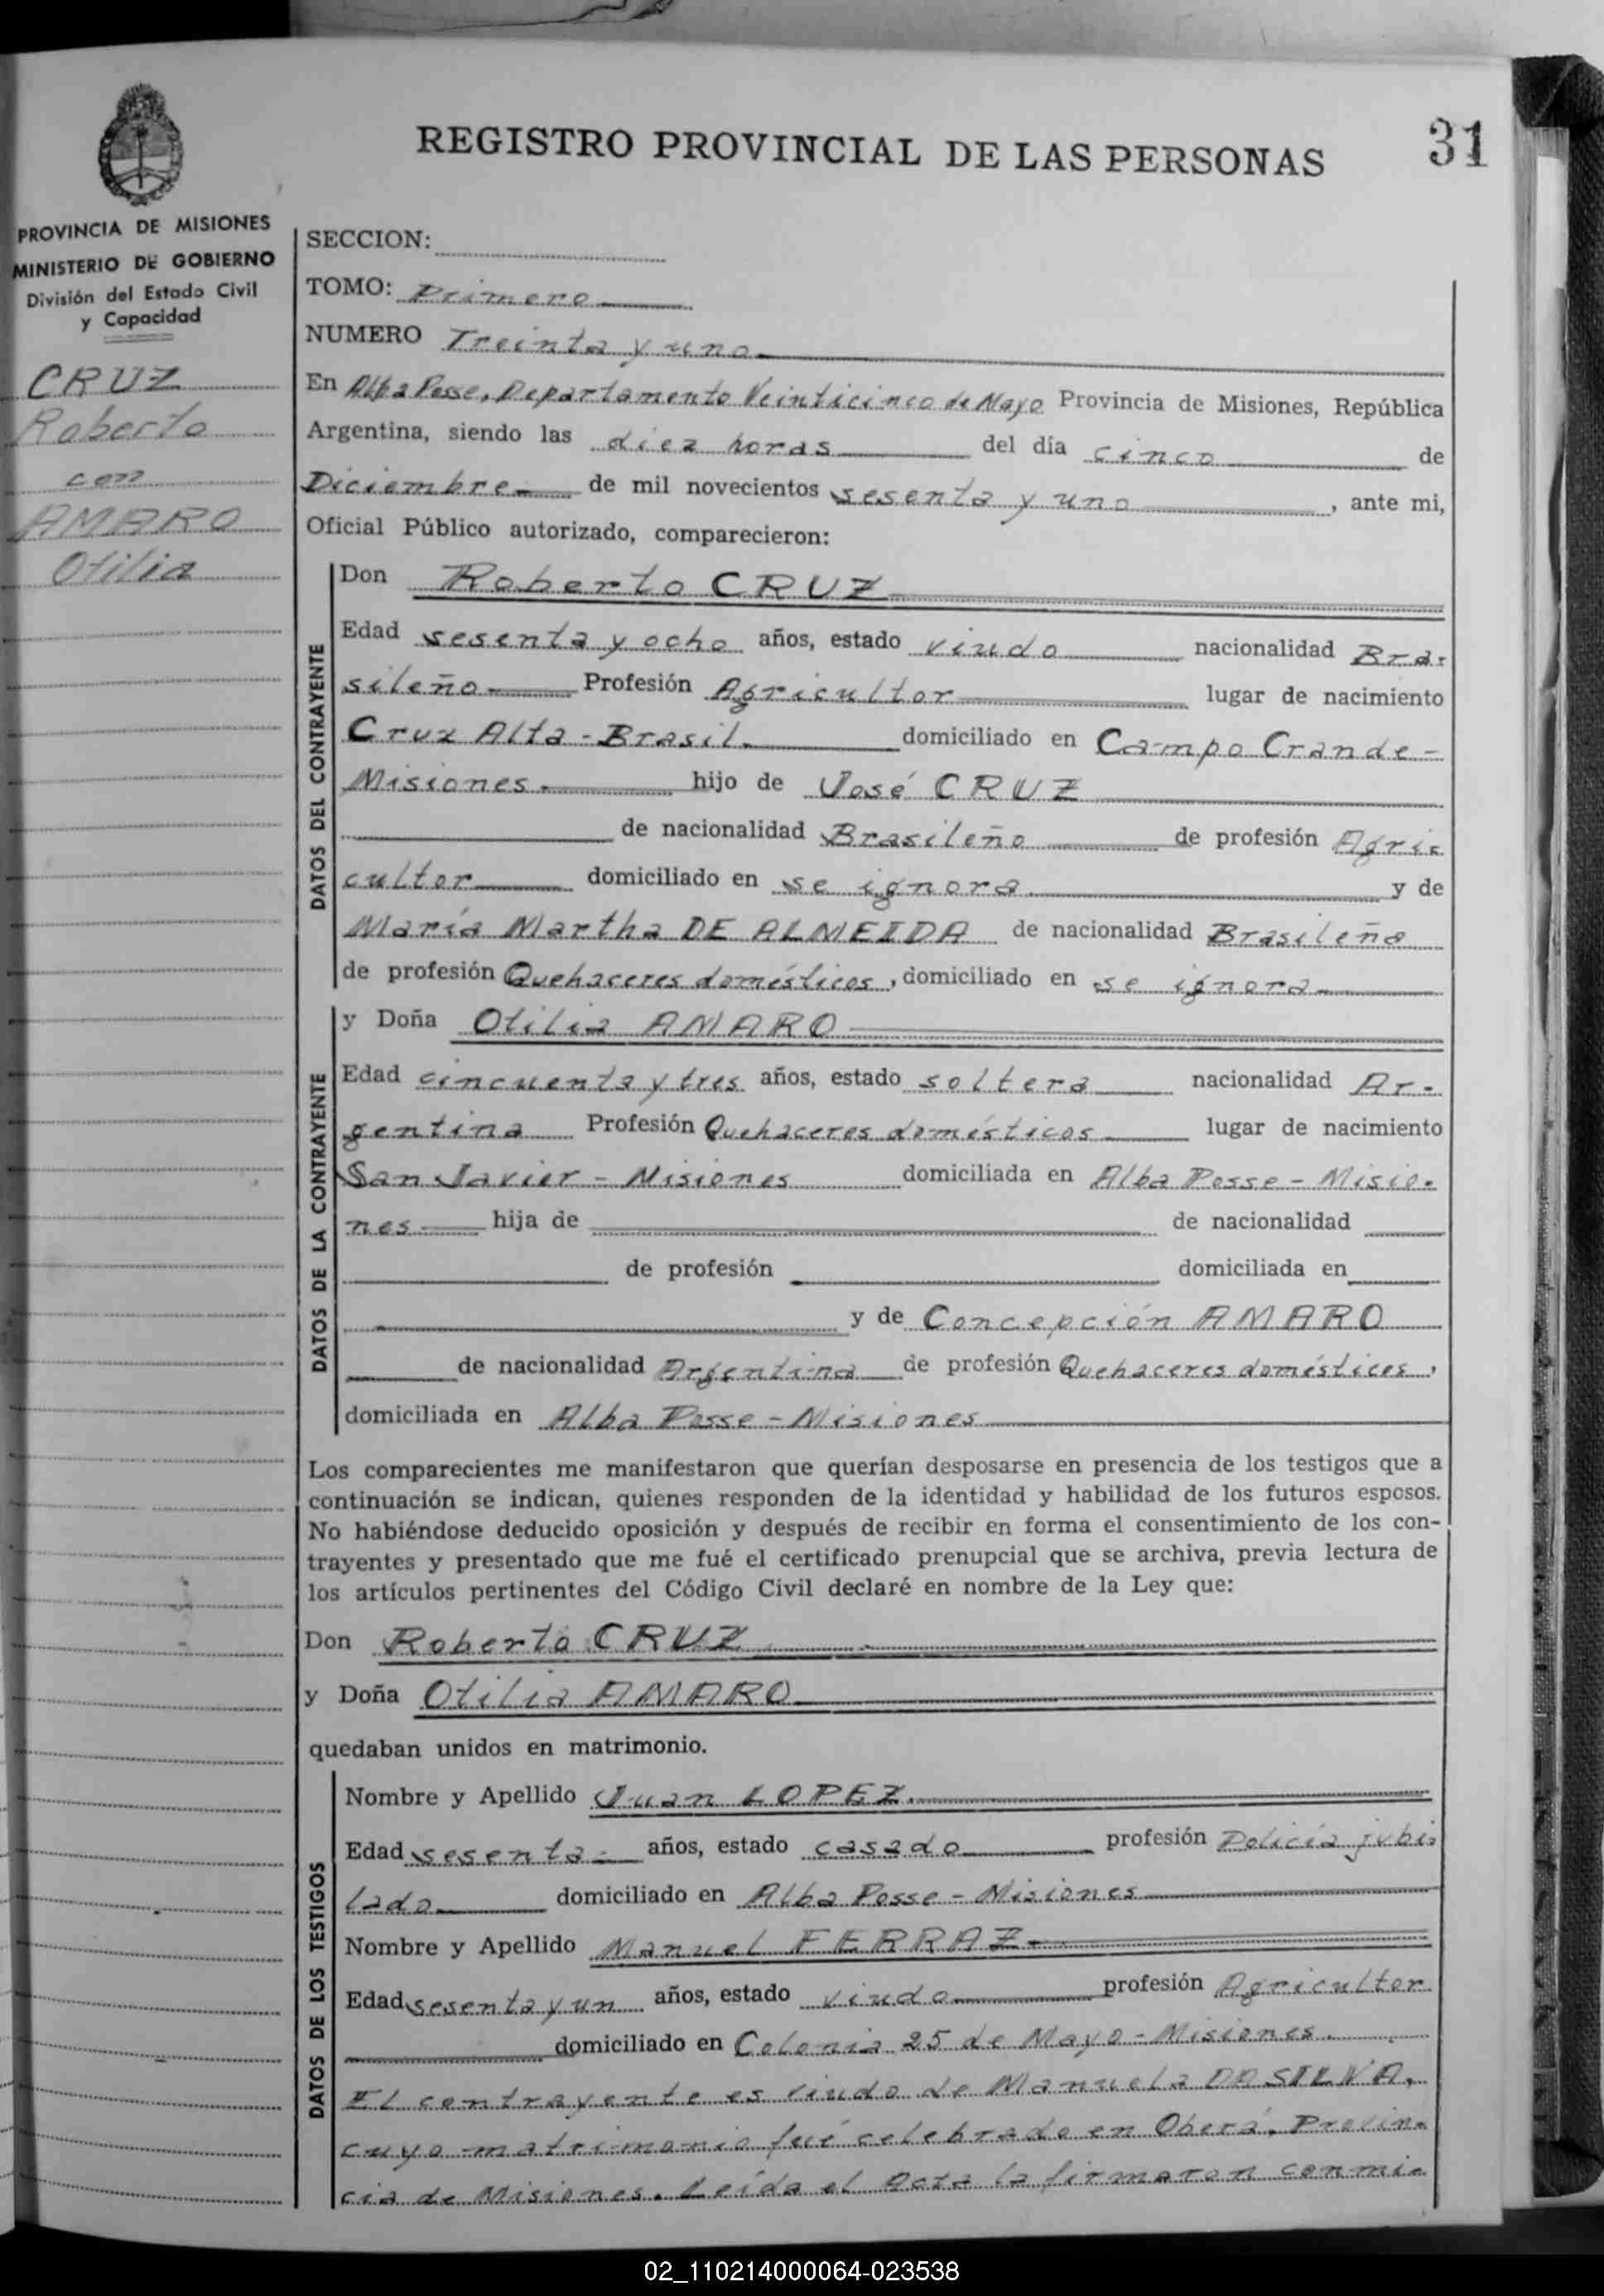 REGISTRO PROVINCIAL DE LAS PERSONAS
31
PROVINCIA DE MISIONES
MINISTERIO DE GOBIERNO
División del Estado Civil
y Capacidad
CRUZ
Roberto
con
AMARO
Otilia
SECCION:
TOMO: Primero
NUMERO Treinta y uno
En Alba Posse, Departamento Veinticinco de Mayo Provincia de Misiones, República
Argentina, siendo las diez horas del día cinco de
Diciembre de mil novecientos sesenta y uno, ante mi,
Oficial Público autorizado, comparecieron:
DATOS DEL CONTRAYENTE
Don Roberto CRUZ
Edad sesenta y ocho años, estado viudo nacionalidad Bra-
sileño Profesión Agricultor lugar de nacimiento
Cruz Alta - Brasil. domiciliado en Campo Grande -
Misiones. hijo de José CRUZ
de nacionalidad Brasileño de profesión Agri-
cultor domiciliado en se ignora y de
María Martha DE ALMEIDA de nacionalidad Brasileña
de profesión Quehaceres domésticos, domiciliado en se ignora
DATOS DE LA CONTRAYENTE
y Doña Otilia AMARO
Edad cincuenta y tres años, estado soltera nacionalidad Ar-
gentina Profesión Quehaceres domésticos lugar de nacimiento
San Javier - Misiones domiciliada en Alba Posse - Misio-
nes hija de de nacionalidad
de profesión domiciliada en
y de Concepción AMARO
de nacionalidad Argentina de profesión Quehaceres domésticos,
domiciliada en Alba Posse - Misiones
Los comparecientes me manifestaron que querían desposarse en presencia de los testigos que a
continuación se indican, quienes responden de la identidad y habilidad de los futuros esposos.
No habiéndose deducido oposición y después de recibir en forma el consentimiento de los con-
trayentes y presentado que me fué el certificado prenupcial que se archiva, previa lectura de
los artículos pertinentes del Código Civil declaré en nombre de la Ley que:
Don Roberto CRUZ
y Doña Otilia AMARO
quedaban unidos en matrimonio.
DATOS DE LOS TESTIGOS
Nombre y Apellido Juan LOPEZ.
Edad sesenta años, estado casado profesión Policía jubi-
lado domiciliado en Alba Posse - Misiones
Nombre y Apellido Manuel FERRAZ
Edad sesenta y un años, estado viudo profesión Agricultor
domiciliado en Colonia 25 de Mayo - Misiones.
El contrayente es viudo de Manuela DA SILVA,
cuyo matrimonio fué celebrado en Oberá, Provin-
cia de Misiones. Leída el acta la firmaron conmi-
02_110214000064-023538